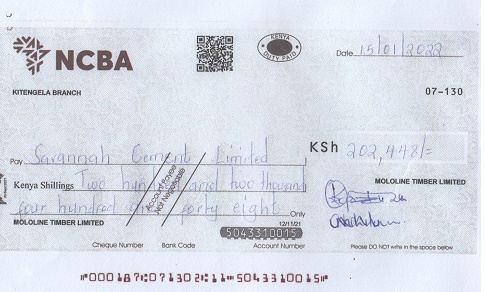 NCBA
KENYA
DUTY PAID
Date 15/01/2022
KITENGELA BRANCH
07-130
Pay Savannah Cement Limited
KSh 202,448/=
Account Payee
Not Negotiable
Kenya Shillings Two hundred and two thousand
four hundred and forty eight Only
MOLOLINE TIMBER LIMITED
MOLOLINE TIMBER LIMITED
12/11/21
5043310015
Cheque Number Bank Code Account Number
Please DO NOT write in the space below
⑈000187⑆071302⑆11⑈5043310015⑈